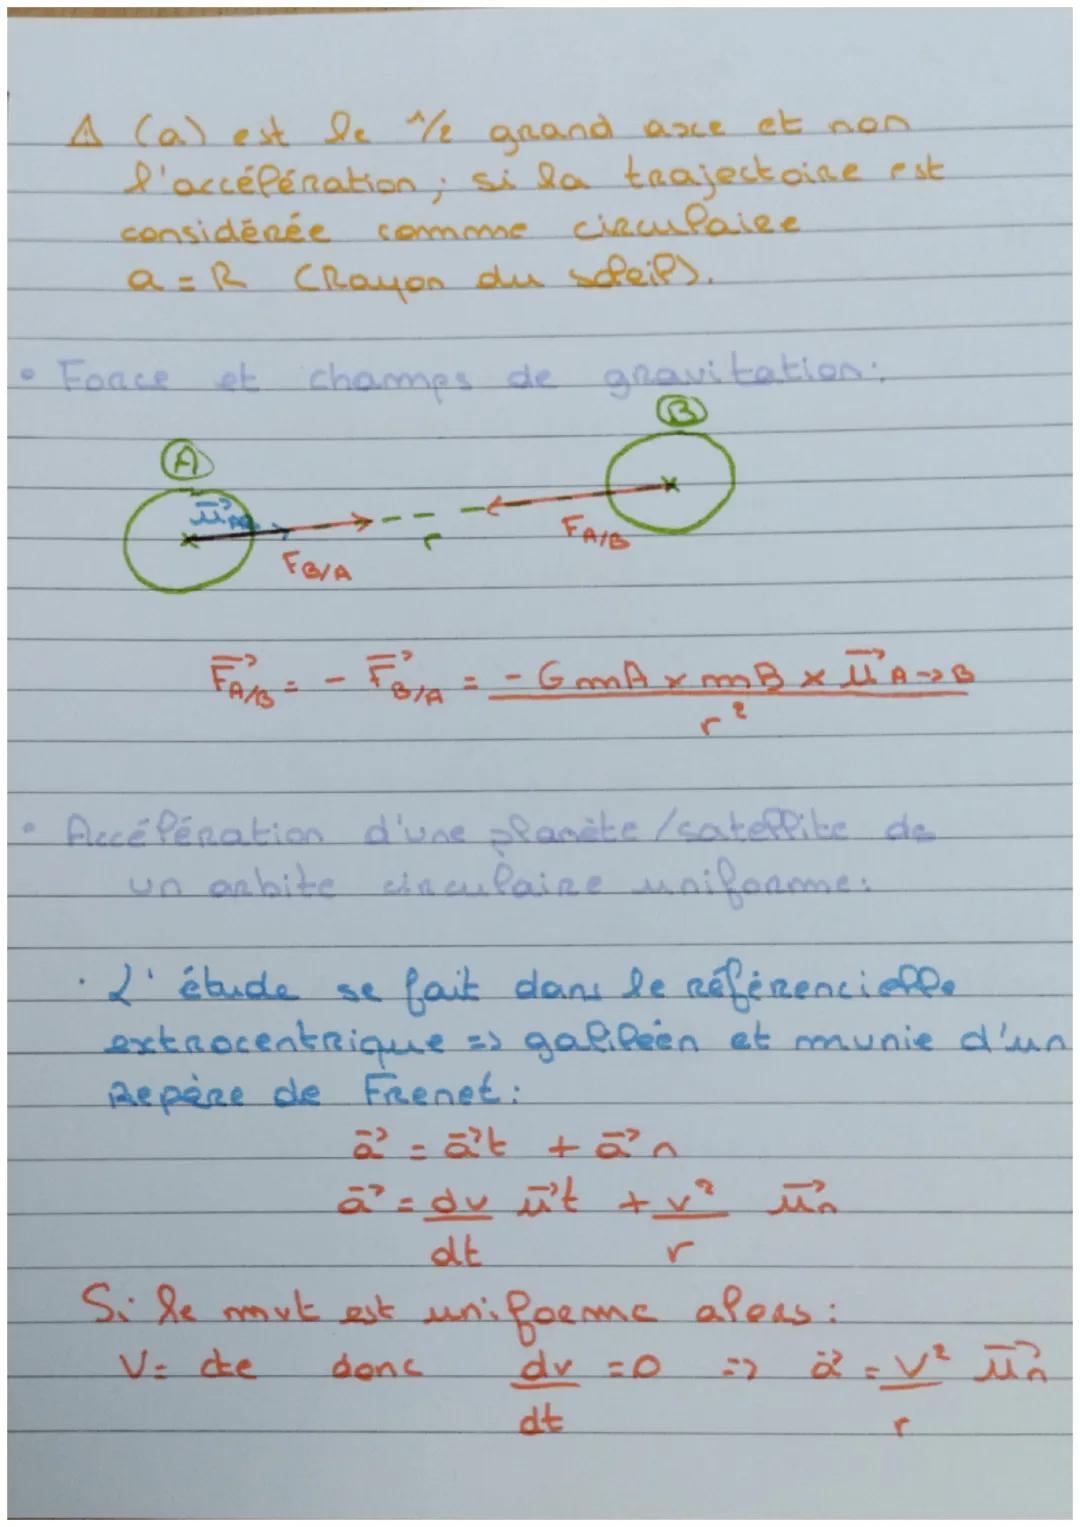 ⚠ (a) est le 1/2 grand axe et non
l'accélération ; si la trajectoire est
considérée comme circulaire
a = R (Rayon du soleil).
• Force et champs de gravitation :
B
A
r
F A/B
F B/A
F⃗ A/B = - F⃗ B/A = - G mA x mB x u⃗ A->B
r²
• Accélération d'une planète / satellite de
un orbite circulaire uniforme :
· L'étude se fait dans le référencielle
extrocentrique => galiléen et munie d'un
Repère de Frenet :
a⃗ = a⃗t + a⃗n
a⃗ = dv u⃗t + v² u⃗n
dt r
Si le mvt est uniforme alors :
V = cte donc dv = 0 => a⃗ = v² u⃗n
dt r